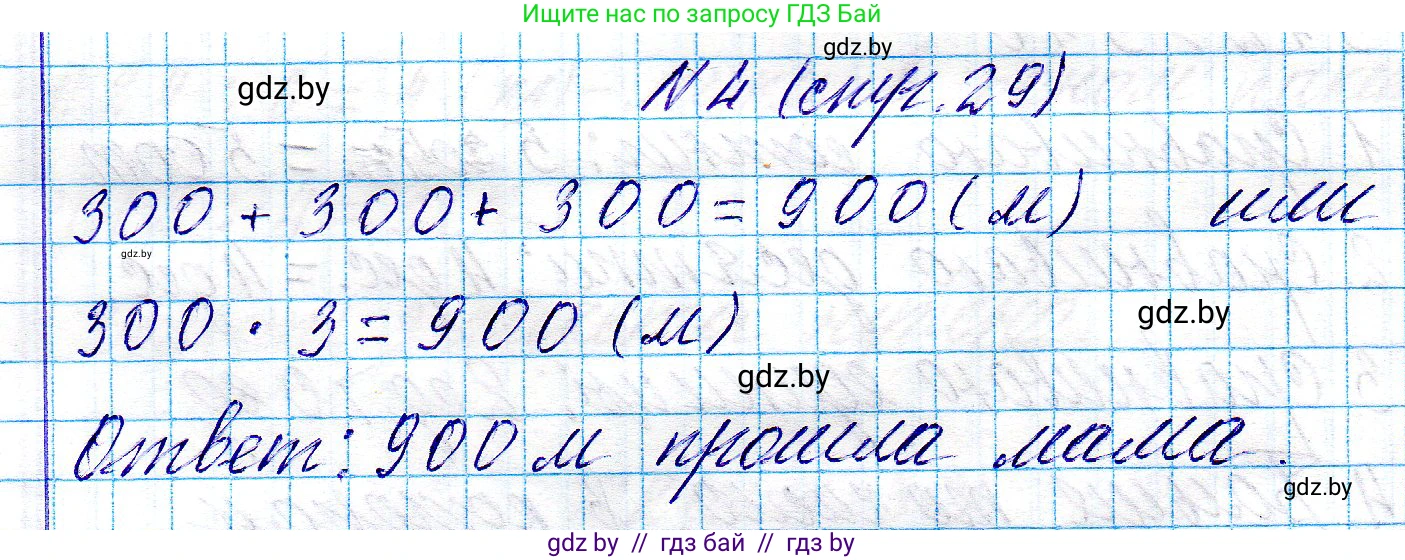 Ищите нас по запросу ГДЗ Бай
gdz.by
gdz.by
N 4 (стр. 29)
300 + 300 + 300 = 900 (м) или
gdz.by
300 · 3 = 900 (м)
gdz.by
gdz.by
Ответ: 900 м прошла мама.
gdz.by
gdz.by // гдз бай // гдз by